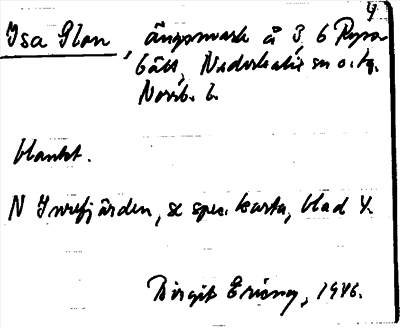 4
Isa Glan, ängsmark å 3, 6 Rysa
6ått, Nederkalix sn o. tg.
Norrb. l.
blankt.
N Inrefjärden, se spec. karta, blad 4.
Birgit Ericny, 1946.